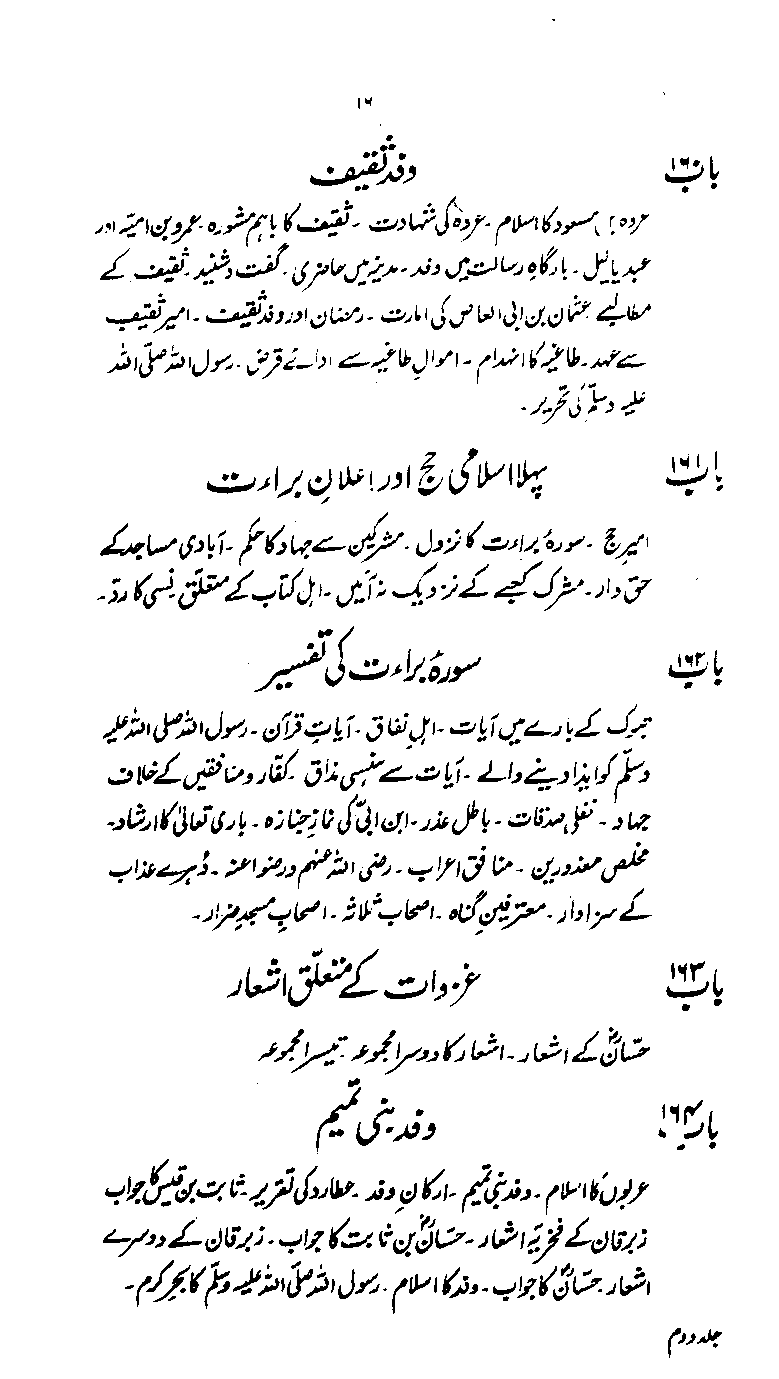 ۱۶
باب ۱۶۰
وفد ثقیف
عروہ بن مسعود کا اسلام ۔ عروہ کی شہادت ۔ ثقیف کا باہم مشورہ ۔ عمرو بن امیّہ اور
عبد یالیل ۔ بارگاہِ رسالت میں وفد ۔ مدینے میں حاضری ۔ گفت و شنید ۔ ثقیف کے
مطالبے عثمان بن ابی العاص کی امارت ۔ رمضان اور وفد ثقیف ۔ امیر ثقیف
سے عہد ۔ طاغیہ کا انہدام ۔ اموالِ طاغیہ سے ادائے قرض ۔ رسول اللہ صلّی اللہ
علیہ وسلّم کی تحریر ۔
باب ۱۶۱
پہلا اسلامی حج اور اعلانِ براءت
امیرِ حج ۔ سورۂ براءت کا نزول ۔ مشرکین سے جہاد کا حکم ۔ آبادیِ مساجد کے
حق دار ۔ مشرک کعبے کے نزدیک نہ آئیں ۔ اہل کتاب کے متعلّق نسی کا ردّ ۔
باب ۱۶۲
سورۂ براءت کی تفسیر
تبوک کے بارے میں آیات ۔ اہلِ نفاق ۔ آیاتِ قرآن ۔ رسول اللہ صلی اللہ علیہ
وسلّم کو ایذا دینے والے ۔ آیات سے ہنسی مذاق ۔ کفّار و منافقین کے خلاف
جہاد ۔ نفلی صدقات ۔ باطل عذر ۔ ابن ابیّ کی نمازِ جنازہ ۔ باری تعالیٰ کا ارشاد ۔
مخلص معذورین ۔ منافق اعراب ۔ رضی اللہ عنہم ورضوا عنہ ۔ دُہرے عذاب
کے سزاوار ۔ معترفینِ گناہ ۔ اصحابِ ثلاثہ ۔ اصحابِ مسجدِ ضرار ۔
باب ۱۶۳
غزوات کے متعلّق اشعار
حسّانؓ کے اشعار ۔ اشعار کا دوسرا مجموعہ ۔ تیسرا مجموعہ
باب ۱۶۴
وفد بنی تمیم
عربوں کا اسلام ۔ وفد بنی تمیم ۔ ارکانِ وفد ۔ عطارد کی تقریر ۔ ثابت بن قیس کا جواب
زبرقان کے فخریّہ اشعار ۔ حسّانؓ بن ثابت کا جواب ۔ زبرقان کے دوسرے
اشعار حسّانؓ کا جواب ۔ وفد کا اسلام ۔ رسول اللہ صلّی اللہ علیہ وسلّم کا بحرِ کرم ۔
جلد دوم